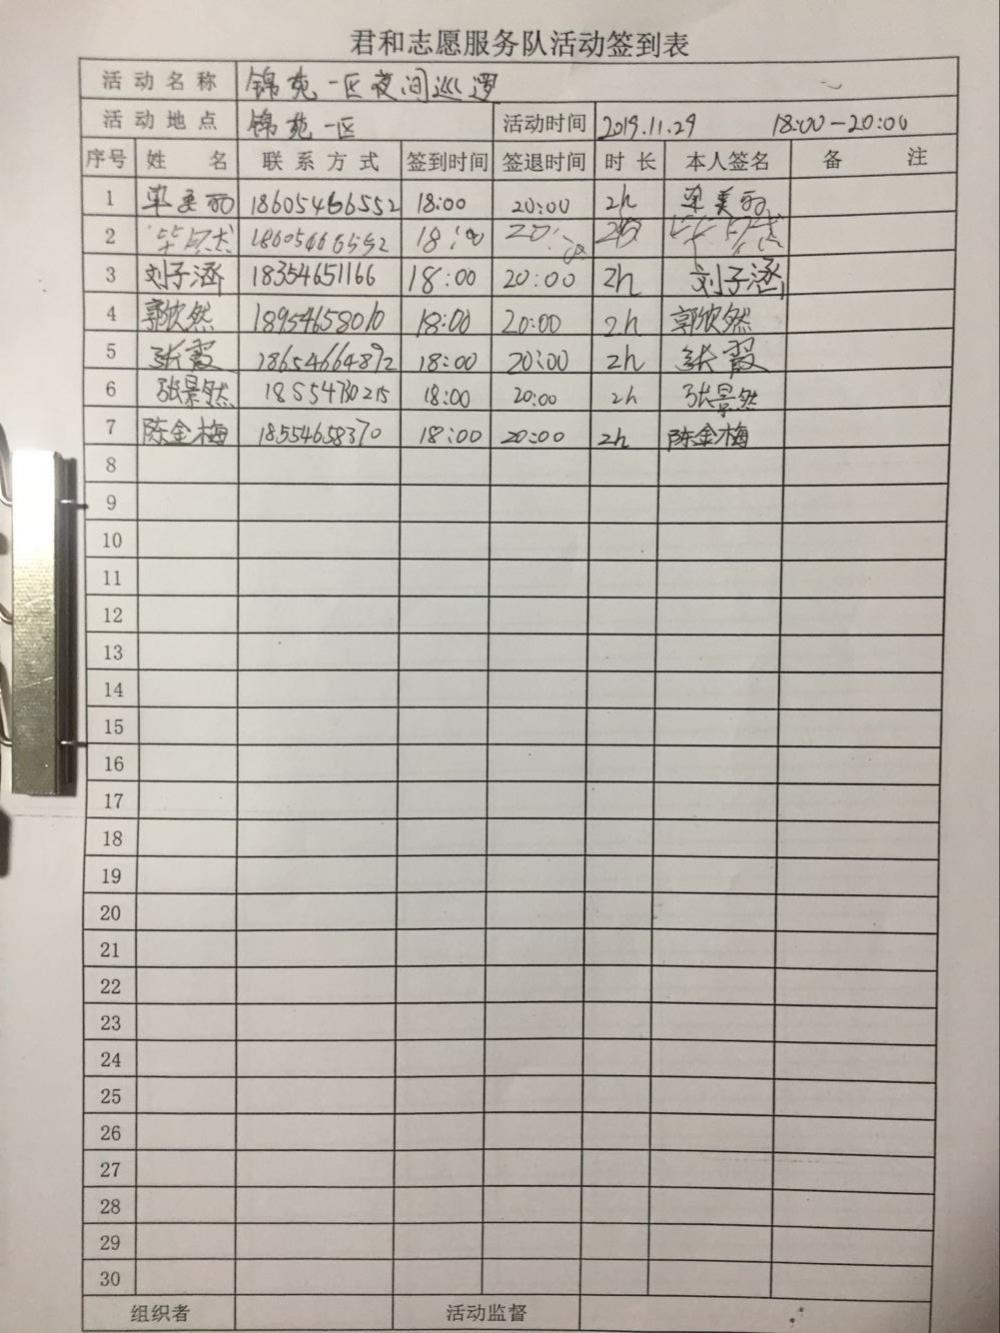 君和志愿服务队活动签到表
活动名称 锦苑一区夜间巡逻
活动地点 锦苑一区 活动时间 2019.11.29 18:00-20:00
序号 姓名 联系方式 签到时间 签退时间 时长 本人签名 备注
1 单美丽 18605466552 18:00 20:00 2h 单美丽
2 18605466552 18:00 20:00
3 刘子涵 18354651166 18:00 20:00 2h 刘子涵
4 郭欣然 18954658010 18:00 20:00 2h 郭欣然
5 张霞 18654664892 18:00 20:00 2h 张霞
6 张景然 18554780215 18:00 20:00 2h 张景然
7 陈金梅 18554658370 18:00 20:00 2h 陈金梅
8
9
10
11
12
13
14
15
16
17
18
19
20
21
22
23
24
25
26
27
28
29
30
组织者 活动监督